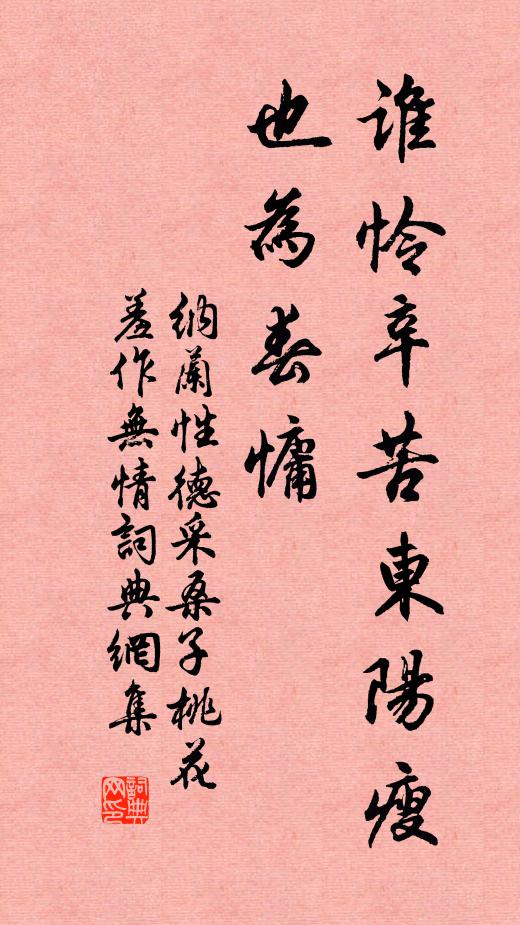 誰怜辛苦東陽瘦
也為春慵
納蘭性德采桑子桃花
羞作無情詞典網集
詞典
网印